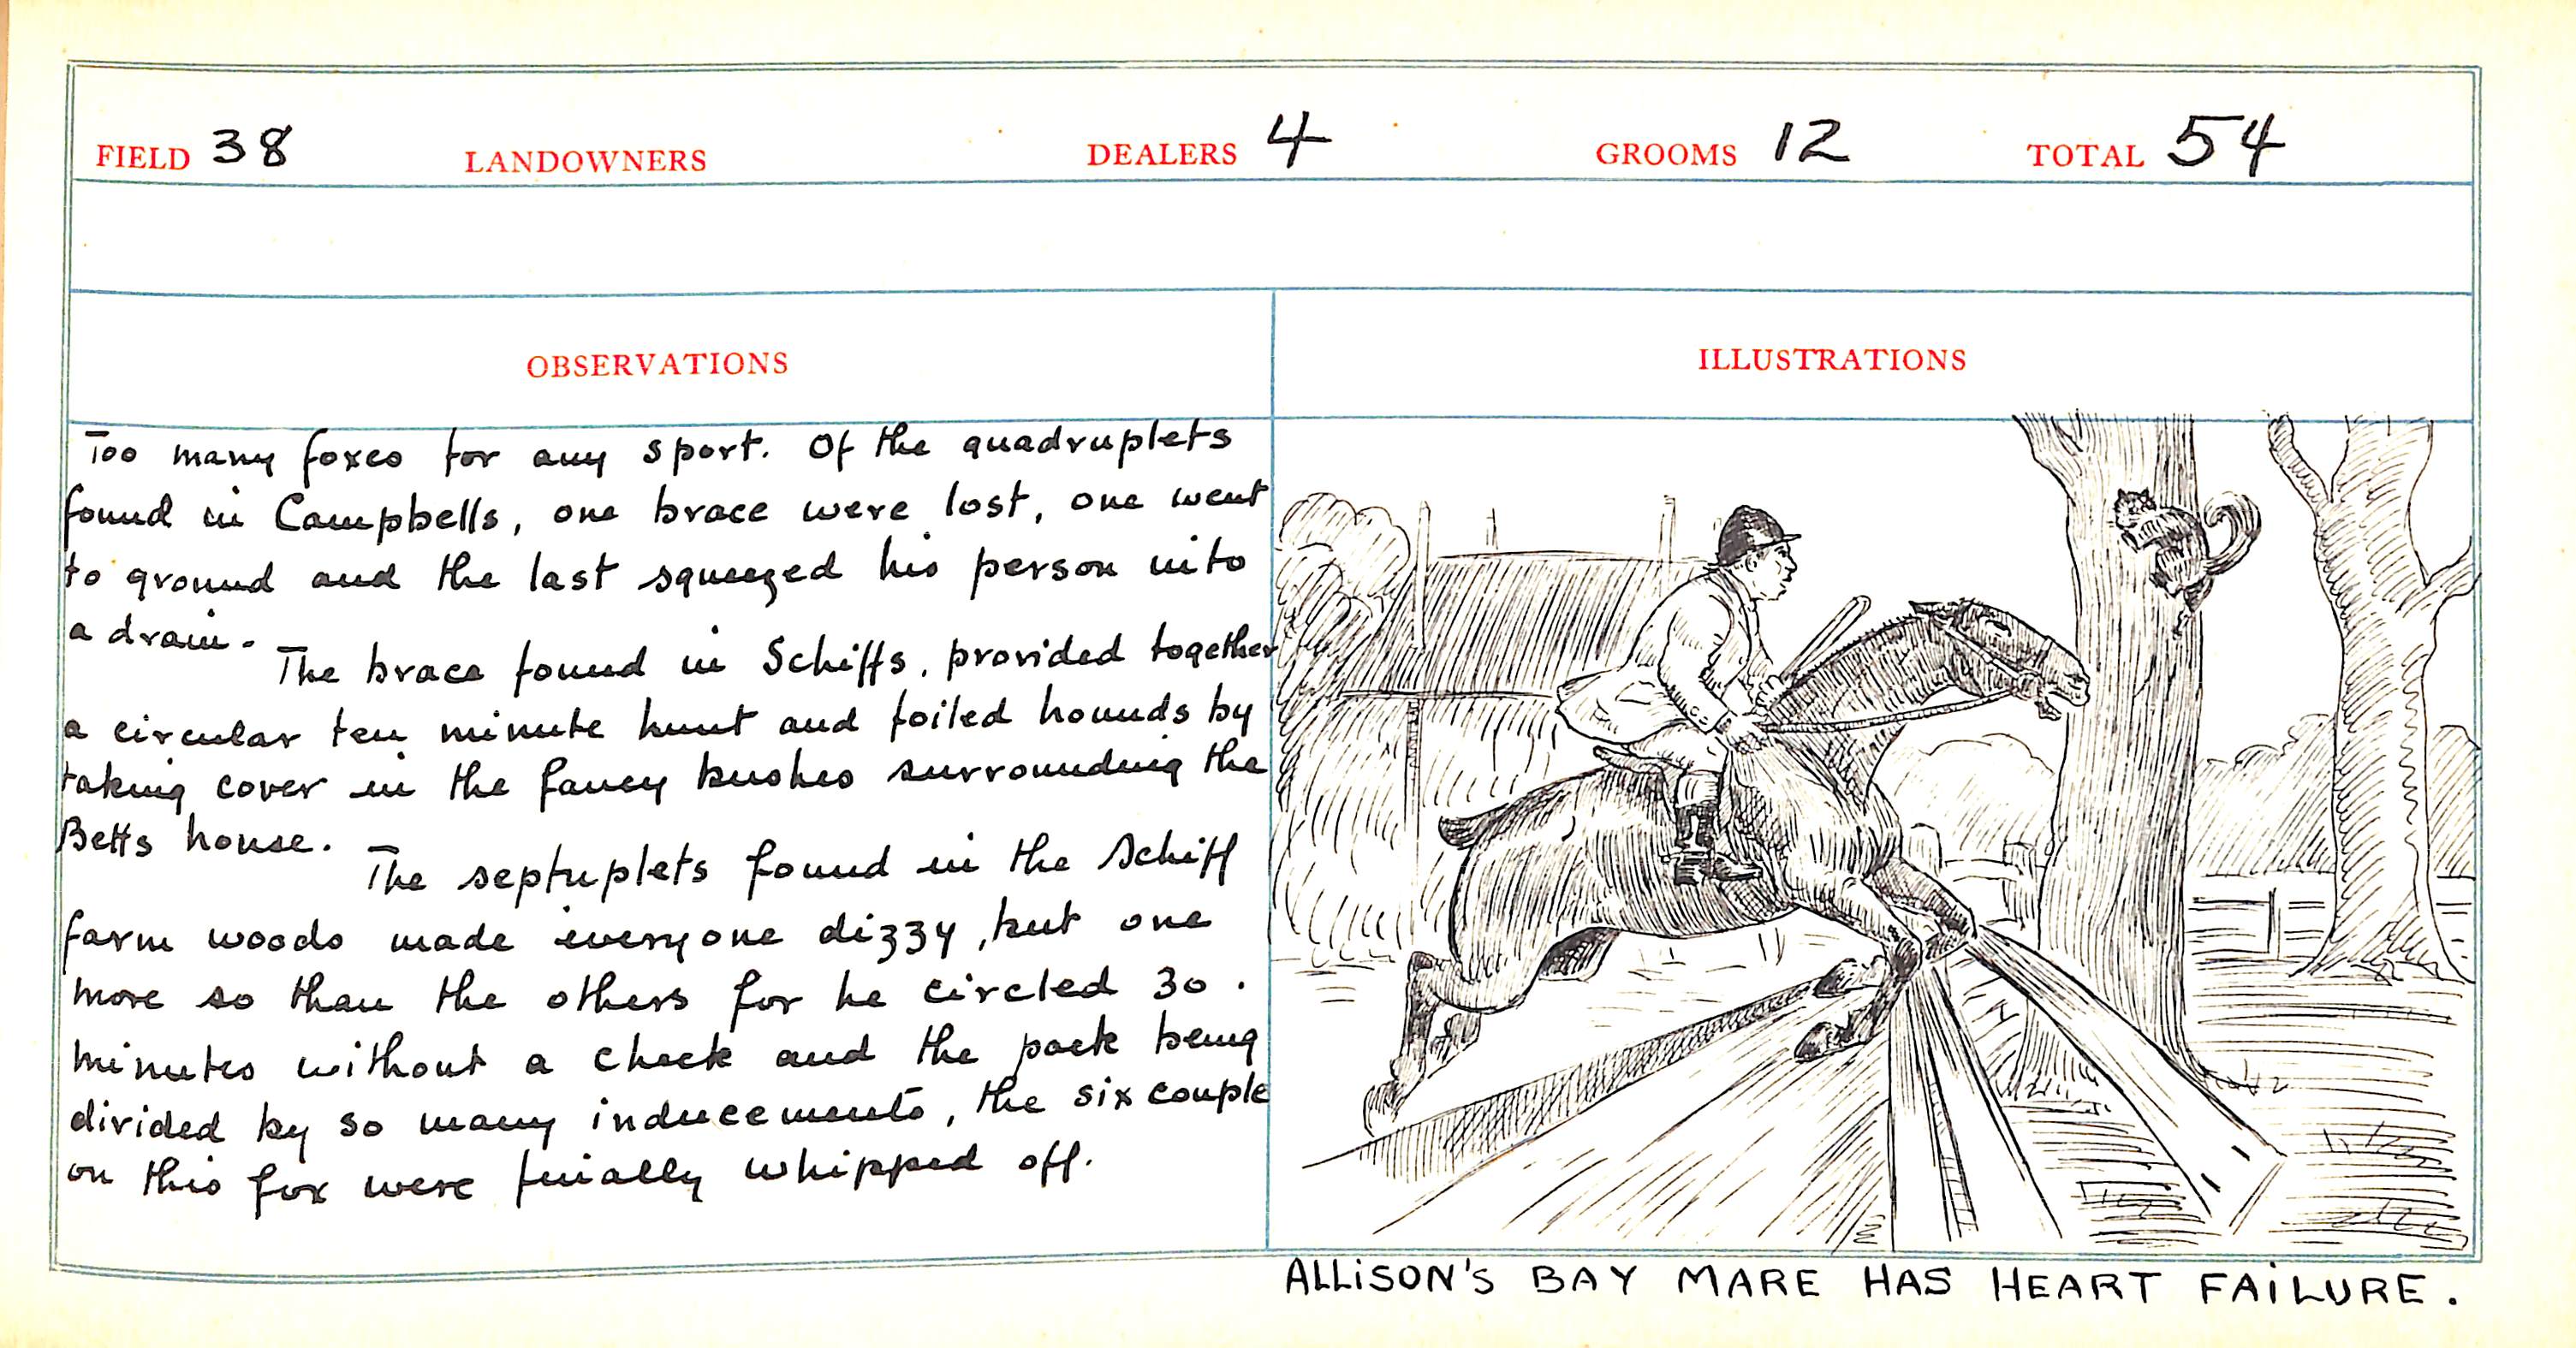 FIELD 38 LANDOWNERS DEALERS 4 GROOMS 12 TOTAL 54
OBSERVATIONS
ILLUSTRATIONS
Too many foxes for any sport. Of the quadruplets
found in Campbells, one brace were lost, one went
to ground and the last squeezed his person into
a drain.
The brace found in Schiffs, provided together
a circular ten minute hunt and foiled hounds by
taking cover in the fancy bushes surrounding the
Betts house.
The septuplets found in the Schiff
farm woods made everyone dizzy, but one
more so than the others for he circled 30.
minutes without a check and the pack being
divided by so many inducements, the six couple
on this fox were finially whipped off.
ALLISON'S BAY MARE HAS HEART FAILURE.